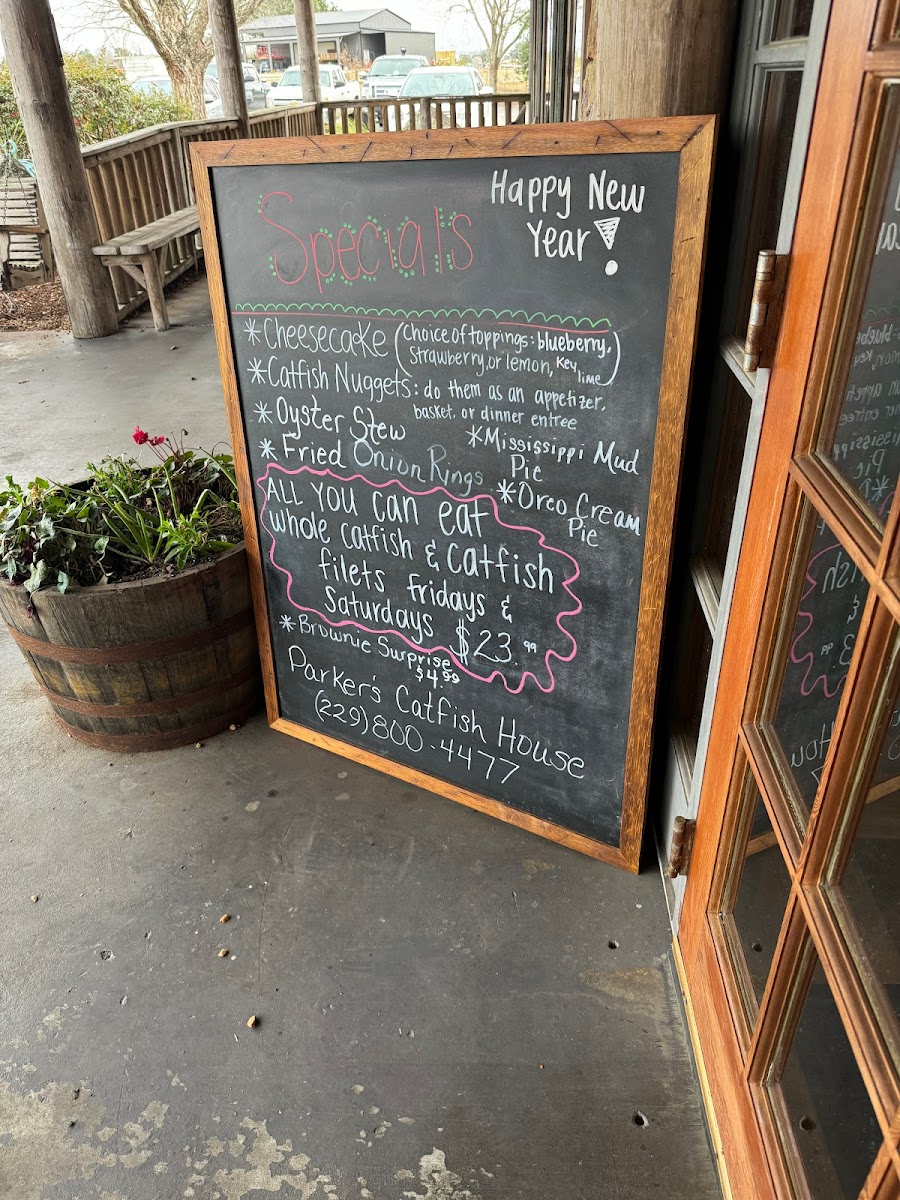 Happy New
Year!
Specials
*Cheesecake (Choice of toppings: blueberry,
strawberry, or lemon, Key
lime)
*Catfish Nuggets: do them as an appetizer,
basket, or dinner entree
*Oyster Stew
*Fried Onion Rings
*Mississippi Mud
Pie
*Oreo Cream
Pie
ALL YOU can eat
whole catfish & catfish
filets Fridays &
Saturdays $23.99
*Brownie Surprise
$4.99
Parker's Catfish House
(229)800-4477